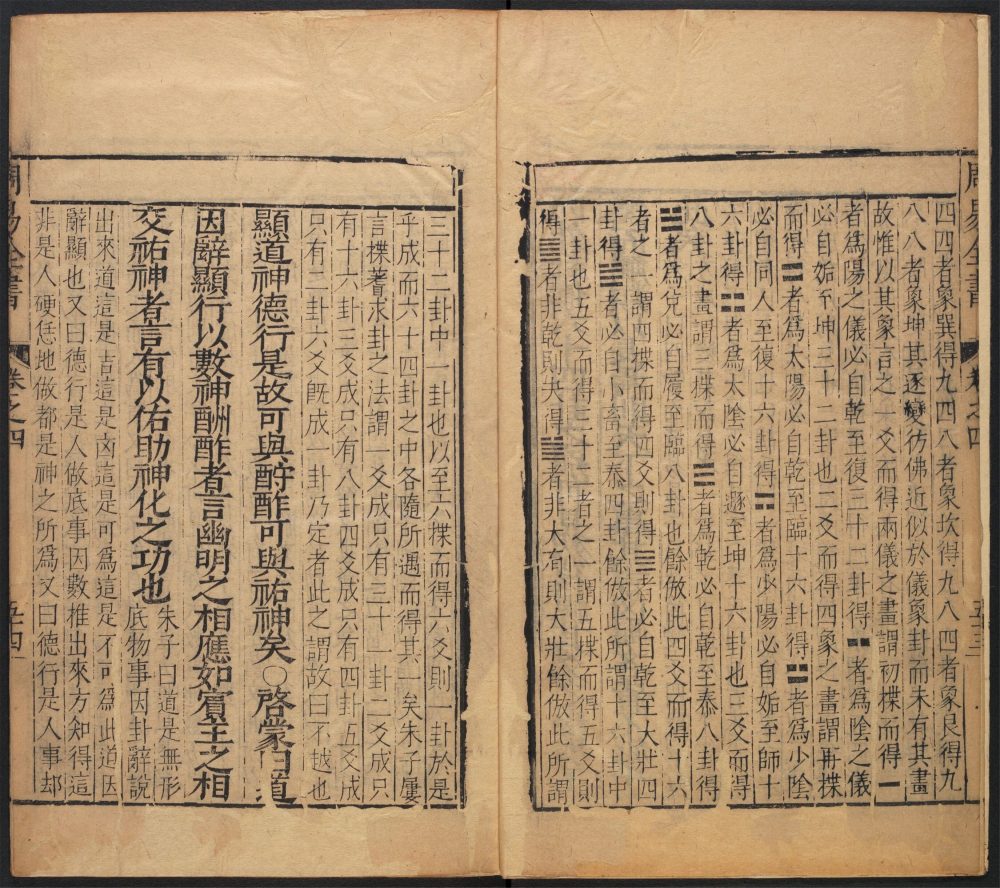 周易全書 卷之四 五三
四四者象巽得九四八者象坎得九八四者象艮得九
八八者象坤其逐變彷佛近似於儀象卦而未有其畫
故惟以其象言之一爻而得兩儀之畫謂初揲而得⚊
者爲陽之儀必自乾至復三十二卦得⚋者爲陰之儀
必自姤至坤三十二卦也二爻而得四象之畫謂再揲
而得⚌者爲太陽必自乾至臨十六卦得⚍者爲少陰
必自同人至復十六卦得⚎者爲少陽必自姤至師十
六卦得⚏者爲太陰必自遯至坤十六卦也三爻而得
八卦之畫謂三揲而得☰者爲乾必自乾至泰八卦得
☱者爲兌必自履至臨八卦也餘倣此四爻而得十六
者之一謂四揲而得四爻則得者必自乾至大壯四
卦得者必自小畜至泰四卦餘倣此所謂十六卦中
一卦也五爻而得三十二者之一謂五揲而得五爻則
得者非乾則夬得者非大有則大壯餘倣此所謂
三十二卦中一卦也以至六揲而得六爻則一卦於是
乎成而六十四卦之中各隨所遇而得其一矣朱子屢
言揲蓍求卦之法謂一爻成只有三十一卦二爻成只
有十六卦三爻成只有八卦四爻成只有四卦五爻成
只有二卦六爻既成一卦乃定者此之謂故曰不越也
顯道神德行是故可與酬酢可與祐神矣○啓蒙曰道
因辭顯行以數神酬酢者言幽明之相應如賓主之相
交祐神者言有以佑助神化之功也
朱子曰道是無形
底物事因卦辭說
出來道這是吉這是凶這是可爲這是不可爲此道因
辭顯也又曰德行是人做底事因數推出來方知得這
非是人硬恁地做都是神之所爲又曰德行是人事却
周易全書 卷之四 五四